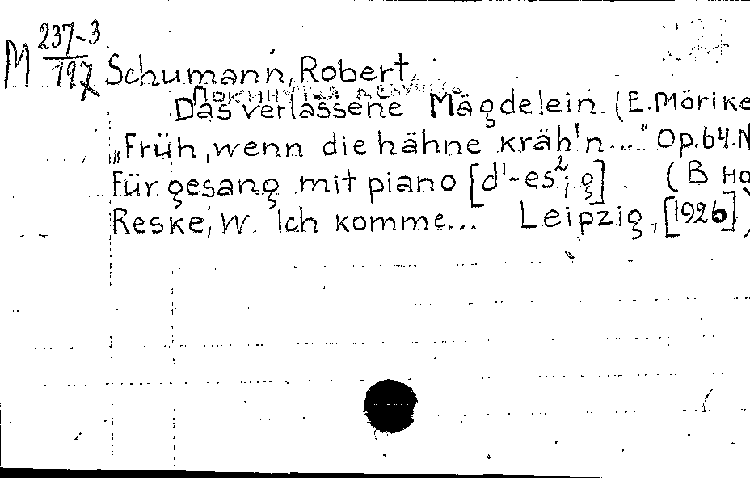 M 237-3
197
Schumann, Robert
Покинута девочка
Das verlassene Mägdelein. (E. Mörike
„Früh, wenn die hähne kräh'n...“ Op. 64. N
Für gesang mit piano [d¹-es², g] (В но
Reske, W. Ich komme... Leipzig, [1926],